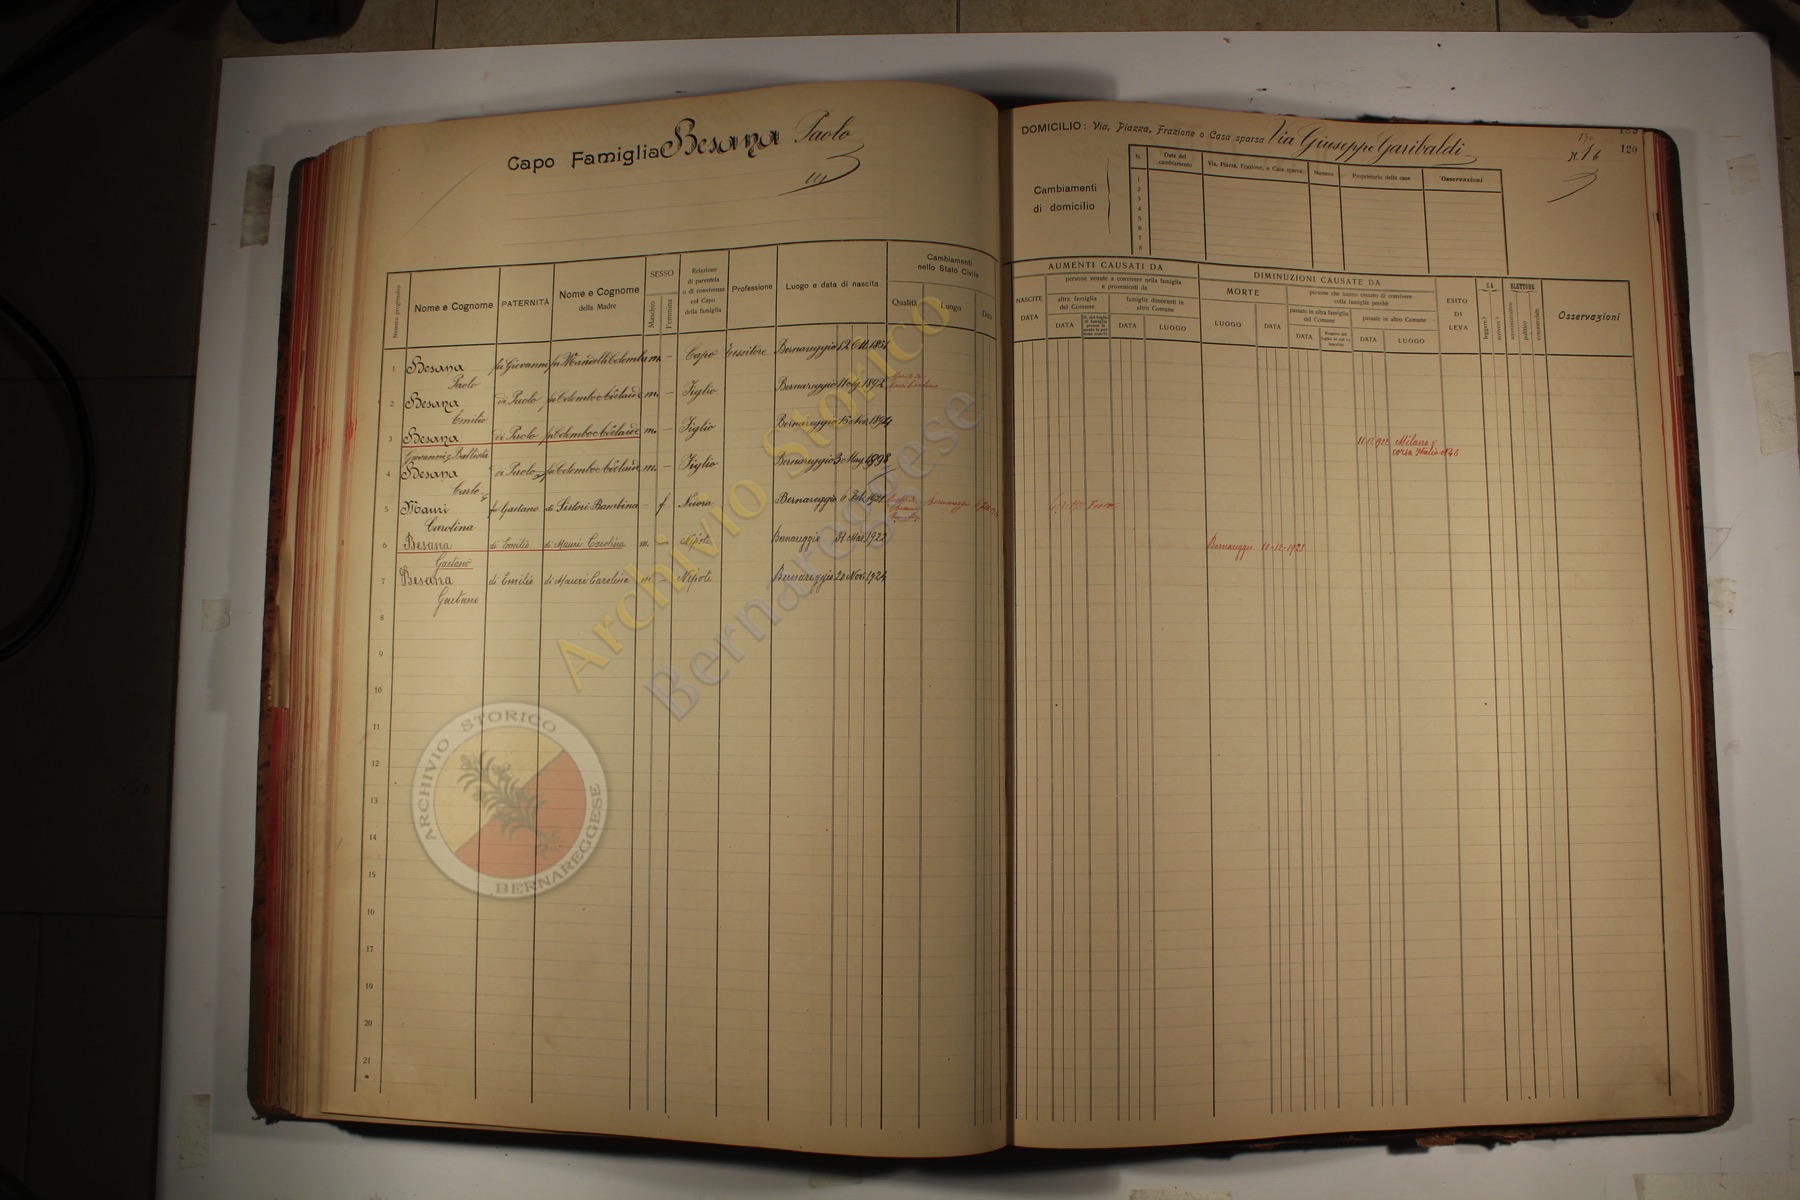 Capo Famiglia Besana Paolo
DOMICILIO: Via, Piazza, Frazione o Casa sparsa Via Giuseppe Garibaldi
120
Cambiamenti
di domicilio
N. Data del cambiamento Via, Piazza, Frazione, o Casa sparsa Numero Proprietario delle case Osservazioni
1
2
3
4
5
6
7
8
Numero progressivo
Nome e Cognome
PATERNITÀ
Nome e Cognome
della Madre
SESSO
Maschio
Femmina
Relazione
di parentela
o di convivenza
col Capo
della famiglia
Professione
Luogo e data di nascita
Cambiamenti
nello Stato Civile
Qualità
Luogo
Data
AUMENTI CAUSATI DA
NASCITE
DATA
persone venute a convivere nella famiglia
e provenienti da
altra famiglia
del Comune
DATA
famiglie dimoranti in
altro Comune
DATA
LUOGO
DIMINUZIONI CAUSATE DA
MORTE
LUOGO
DATA
persone che hanno cessato di convivere
colla famiglia perchè
passate in altra famiglia
del Comune
DATA
passate in altro Comune
DATA
LUOGO
ESITO
DI
LEVA
SA
leggere?
scrivere?
ELETTORE
amministrativo
politico
commerciale
Osservazioni
1 Besana fu Giovanni fu Mandelli Colomba m. – Capo Tessitore Bernareggio 1851
Paolo
2 Besana di Paolo fu Colombo Adelaide m. – Figlio Bernareggio 11 1892
Emilio
3 Besana di Paolo fu Colombo Adelaide m. – Figlio Bernareggio 15 Nov. 1894 Milano
Giovanni Battista corso Italia
4 Besana di Paolo fu Colombo Adelaide m. – Figlio Bernareggio 30 Mag. 1898
Carlo
5 Mauri fu Gaetano di Sirtori Bambina – f Nuora Bernareggio 6 Feb. Bernareggio
Carolina
6 Besana di Emilio di Mauri Carolina m. – Nipote Bernareggio 31 Mar. 1922 Bernareggio
Gaetano
7 Besana di Emilio di Mauri Carolina m – Nipote Bernareggio 20 Nov. 1924
Gaetano
8
9
10
11
12
13
14
15
16
17
18
19
20
21
Archivio Storico
Bernareggese
ARCHIVIO STORICO
BERNAREGGESE